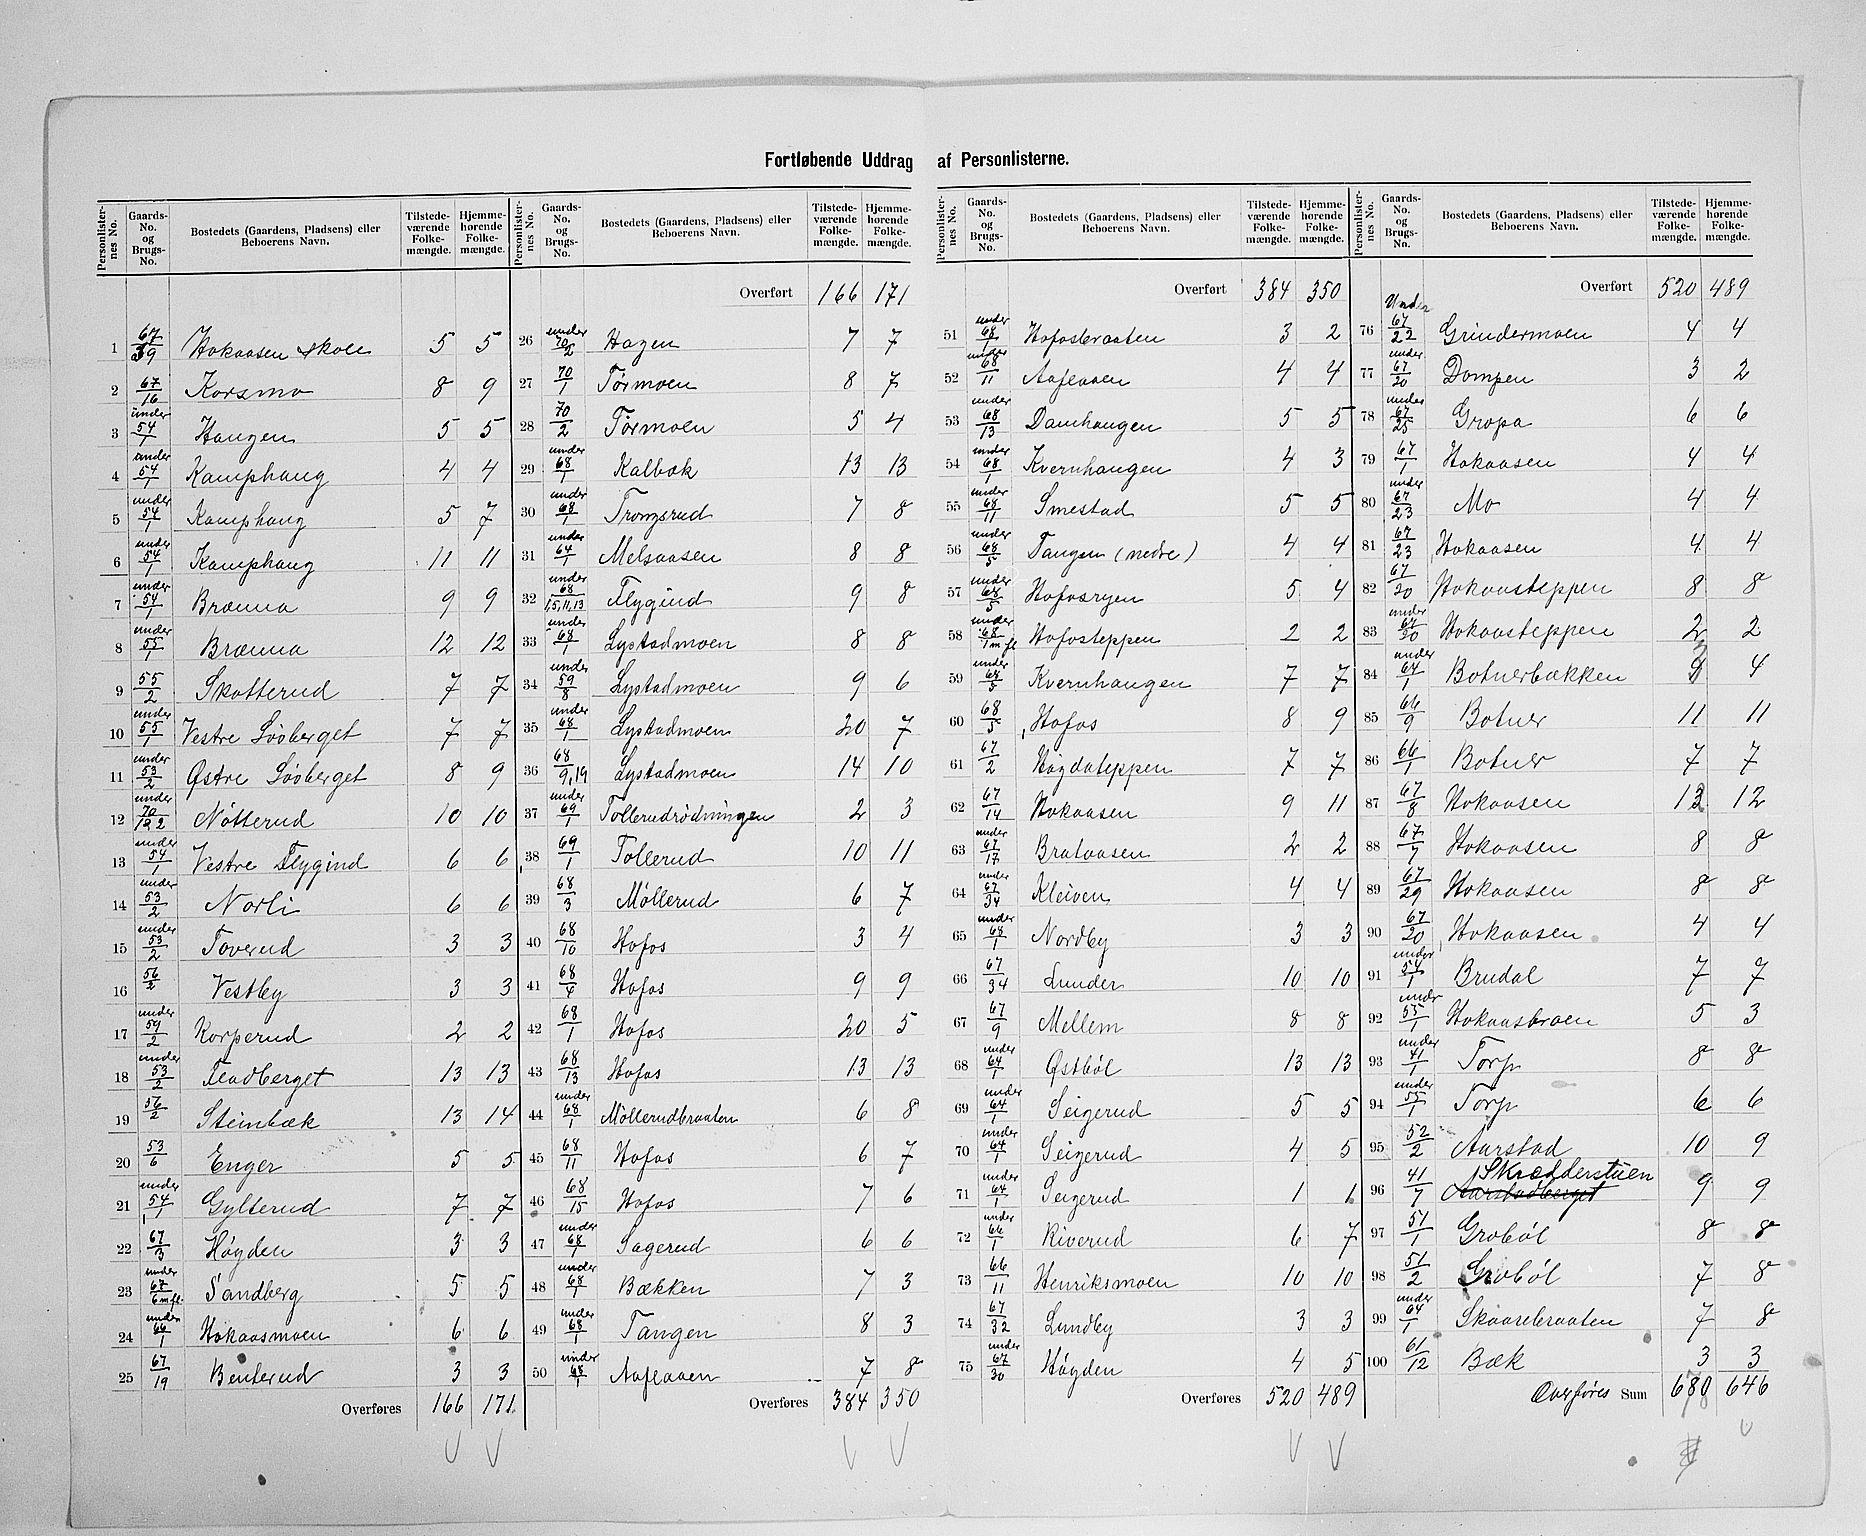 Fortløbende Uddrag af Personlisterne.
Personlisternes No. Gaards-No. og Brugs-No. Bostedets (Gaardens, Pladsens) eller Beboerens Navn. Tilstedeværende Folkemængde. Hjemmehørende Folkemængde.
1 67/39 Hokaasen skole 5 5
2 67/16 Korsmo 8 9
3 under 54/1 Haugen 5 5
4 under 54/1 Kamphaug 4 4
5 under 54/1 Kamphaug 5 7
6 under 54/1 Kamphaug 11 11
7 under 54/1 Brænna 9 9
8 under 55/1 Brænna 12 12
9 55/2 Skotterud 7 7
10 under 55/1 Vestre Løvberget 7 7
11 under 53/2 Østre Løvberget 8 9
12 under 70/1&2 Nötterud 10 10
13 under 54/1 Vestre Flygind 6 6
14 under 53/2 Norli 6 6
15 under 53/2 Toverud 3 3
16 56/2 Vestby 3 3
17 under 59/2 Korperud 2 2
18 under 53/2 Fladberget 13 13
19 56/2 Steinbæk 13 14
20 53/6 Enger 5 5
21 under 54/1 Gylterud 7 7
22 67/3 Høgden 3 3
23 under 67/6 m.fl. Sandberg 5 5
24 under 66/1 Hokaasmoen 6 6
25 67/19 Benterud 3 3
Overføres 166 171
Personlisternes No. Gaards-No. og Brugs-No. Bostedets (Gaardens, Pladsens) eller Beboerens Navn. Tilstedeværende Folkemængde. Hjemmehørende Folkemængde.
Overført 166 171
26 under 70/2 Hagen 7 7
27 70/1 Törmoen 8 7
28 70/2 Törmoen 5 4
29 under 68/1 Kalbæk 13 13
30 under 68/1 Trongsrud 7 8
31 under 64/1 Melsaasen 8 8
32 under 68/1,5,11,13 Flygind 9 8
33 under 68/1 Lystadmoen 8 8
34 under 59/8 Lystadmoen 9 6
35 under 68/1 Lystadmoen 20 7
36 68/9,19 Lystadmoen 14 10
37 under 69/1 Tollerudrödningen 2 3
38 69/1 Tollerud 10 11
39 68/3 Møllerud 6 7
40 68/10 Hofos 3 4
41 68/4 Hofos 9 9
42 68/1 Hofos 20 5
43 68/13 Hofos 13 13
44 under 68/1 Møllerudbraaten 6 8
45 68/11 Hofos 6 7
46 68/15 Hofos 7 6
47 under 68/1 Sagerud 6 6
48 under 68/1 Bækken 7 3
49 under 68/1 Tangen 8 3
50 under 68/1 Aafloen 7 8
Overføres 384 350
Personlisternes No. Gaards-No. og Brugs-No. Bostedets (Gaardens, Pladsens) eller Beboerens Navn. Tilstedeværende Folkemængde. Hjemmehørende Folkemængde.
Overført 384 350
51 under 68/1 Hofosbraaten 3 2
52 under 68/11 4 4
53 under 68/13 Damhaugen 5 5
54 under 68/1 Kvernhaugen 4 3
55 under 68/11 Smestad 5 5
56 under 68/5 Tangen (nedre) 4 4
57 under 68/5 Hofosryen 5 4
58 under 68/1 m.fl. Hofosteppen 2 2
59 under 68/5 Kvernhaugen 7 7
60 68/5 Hofos 8 9
61 67/2 Høgdateppen 7 7
62 67/14 Hokaasen 9 11
63 under 67/17 Brataasen 2 2
64 under 67/34 Kleiven 4 4
65 under 68/1 Nordby 3 3
66 67/34 Lunder 10 10
67 67/9 Mellem 8 8
68 under 64/1 Østböl 13 13
69 under 64/1 Seigerud 5 5
70 under 64/1 Seigerud 4 5
71 under 64/1 Seigerud 1 1
72 under 66/1 Riverud 6 7
73 66/11 Henriksmoen 10 10
74 67/32 Lundby 3 3
75 under 67/30 Høgden 4 5
Overføres 520 489
Personlisternes No. Gaards-No. og Brugs-No. Bostedets (Gaardens, Pladsens) eller Beboerens Navn. Tilstedeværende Folkemængde. Hjemmehørende Folkemængde.
Overført 520 489
76 Under 67/22 Grindermoen 4 4
77 under 67/20 Dompen 3 2
78 under 67/25 Gropa 6 6
79 67/1 Hokaasen 4 4
80 under 67/23 Mo 4 4
81 67/23 Hokaasen 4 4
82 67/20 Hokaasteppen 8 8
83 under 67/20 Hokaasteppen 2 2
84 under 64/1 Botnerbækken 4
85 66/9 Botner 11 11
86 66/1 Botner 7 7
87 67/8 Hokaasen 13 12
88 67/7 Hokaasen 8 8
89 67/29 Hokaasen 8 8
90 67/20 Hokaasen 4 4
91 under 54/1 Brudal 7 7
92 under 55/1 Hokaasbroen 5 3
93 under 41/1 Torp 8 8
94 under 55/1 Torp 6 6
95 52/2 Aarstad 10 9
96 41/7 Skrædderstuen Aarstadberget 9 9
97 51/1 Groböl 8 8
98 51/2 Groböl 7 8
99 under 64/1 Skaarebraaten 7 8
100 61/12 Bæk 3 3
Overføres Sum 646